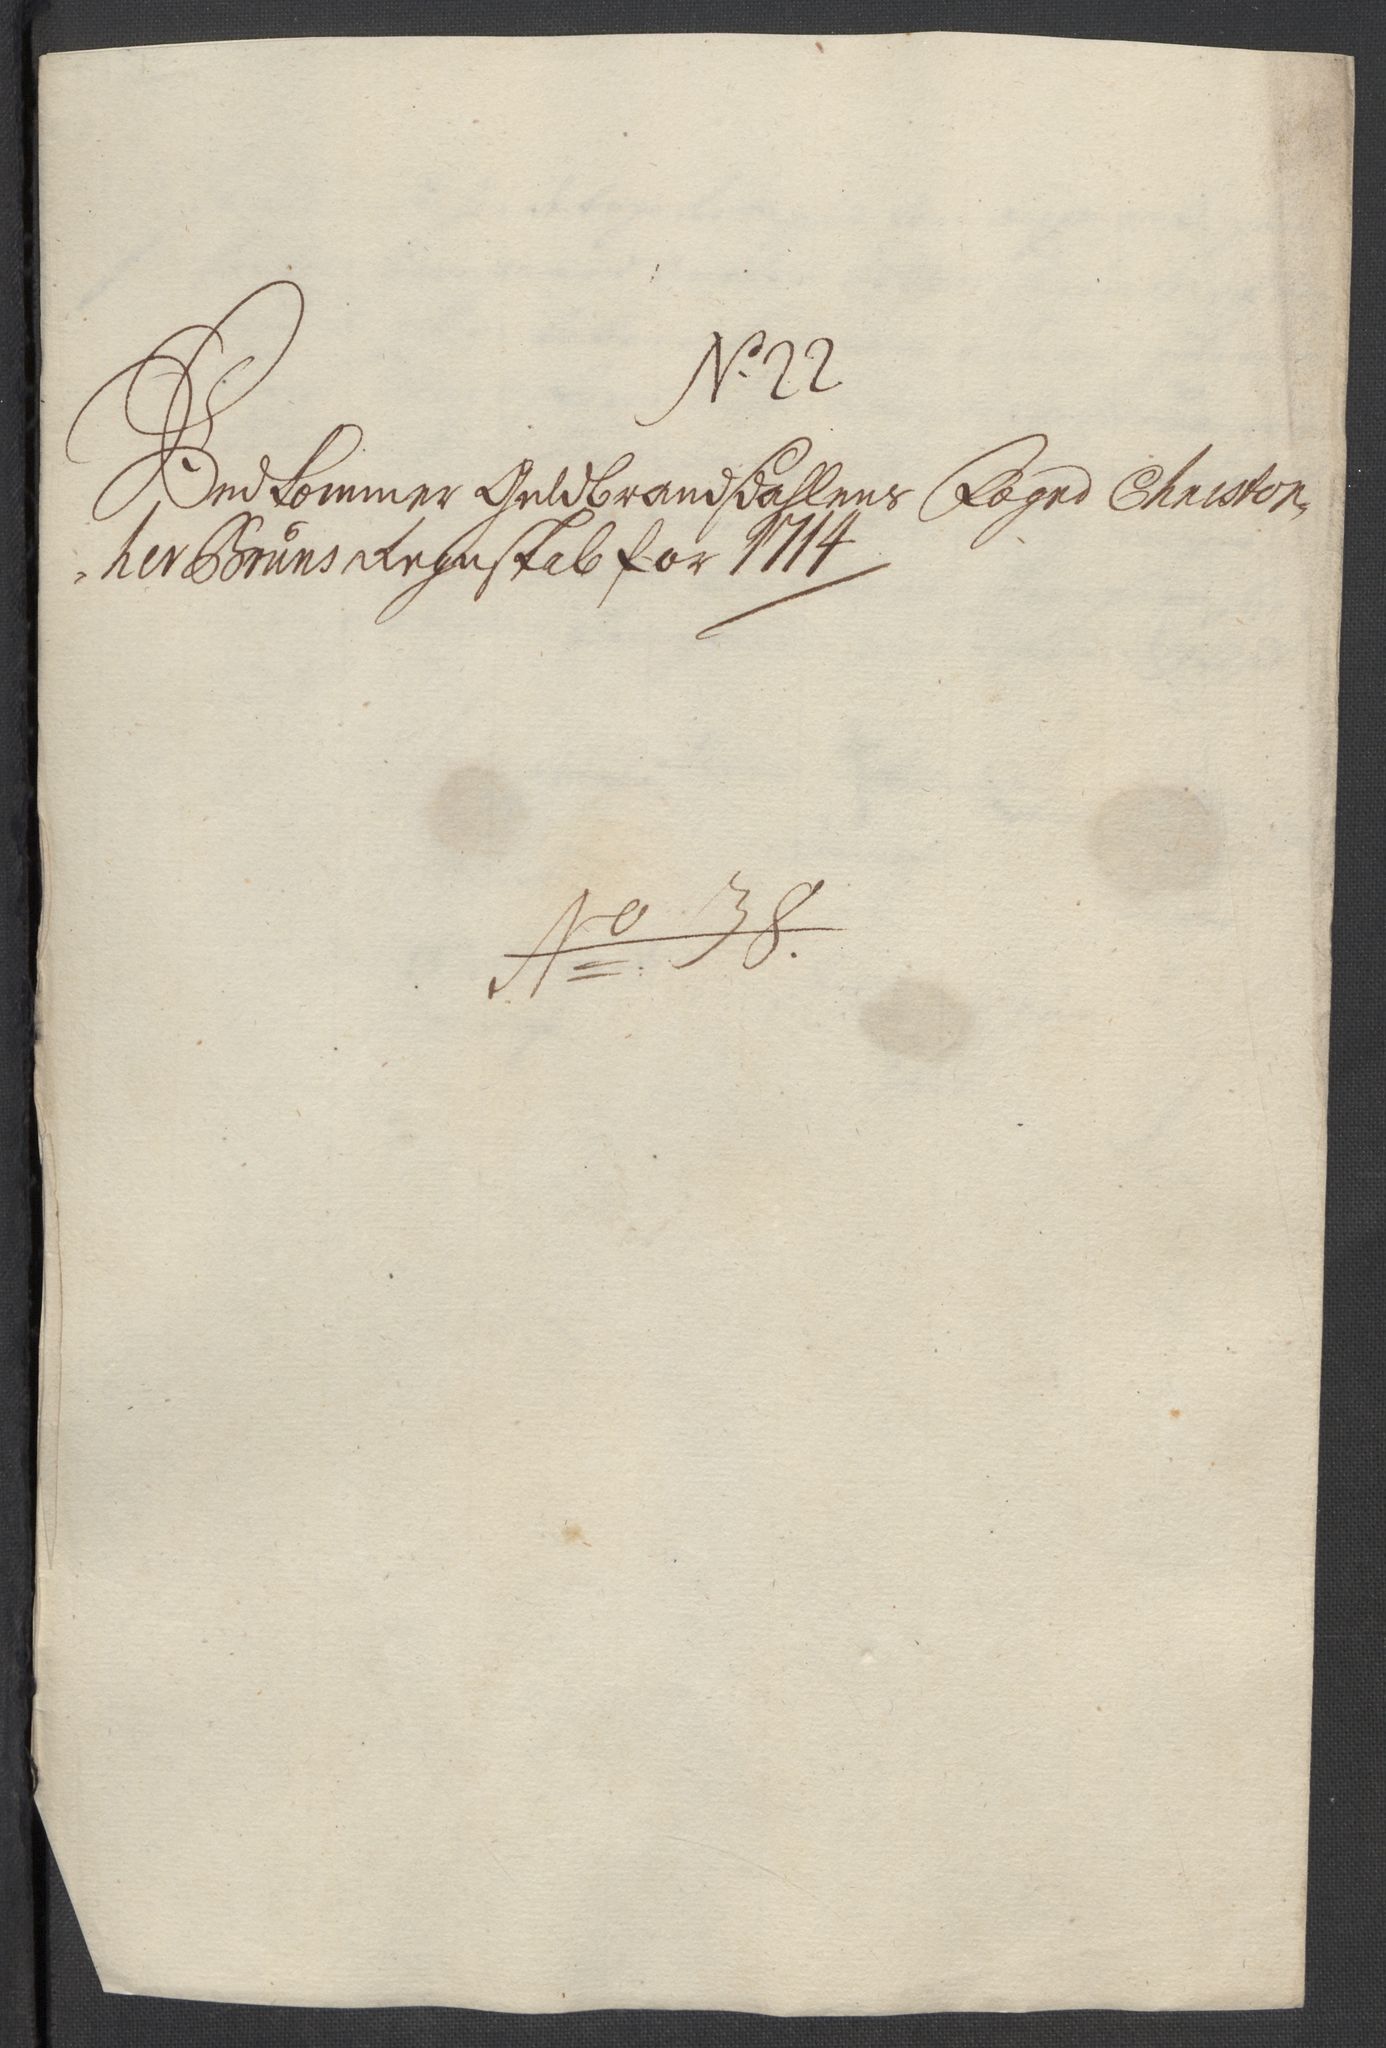 No 22
Vedkommer Guldbrandsdahlens Foged Christof„
„her Bruuns Regnskab for 1714
No 38.